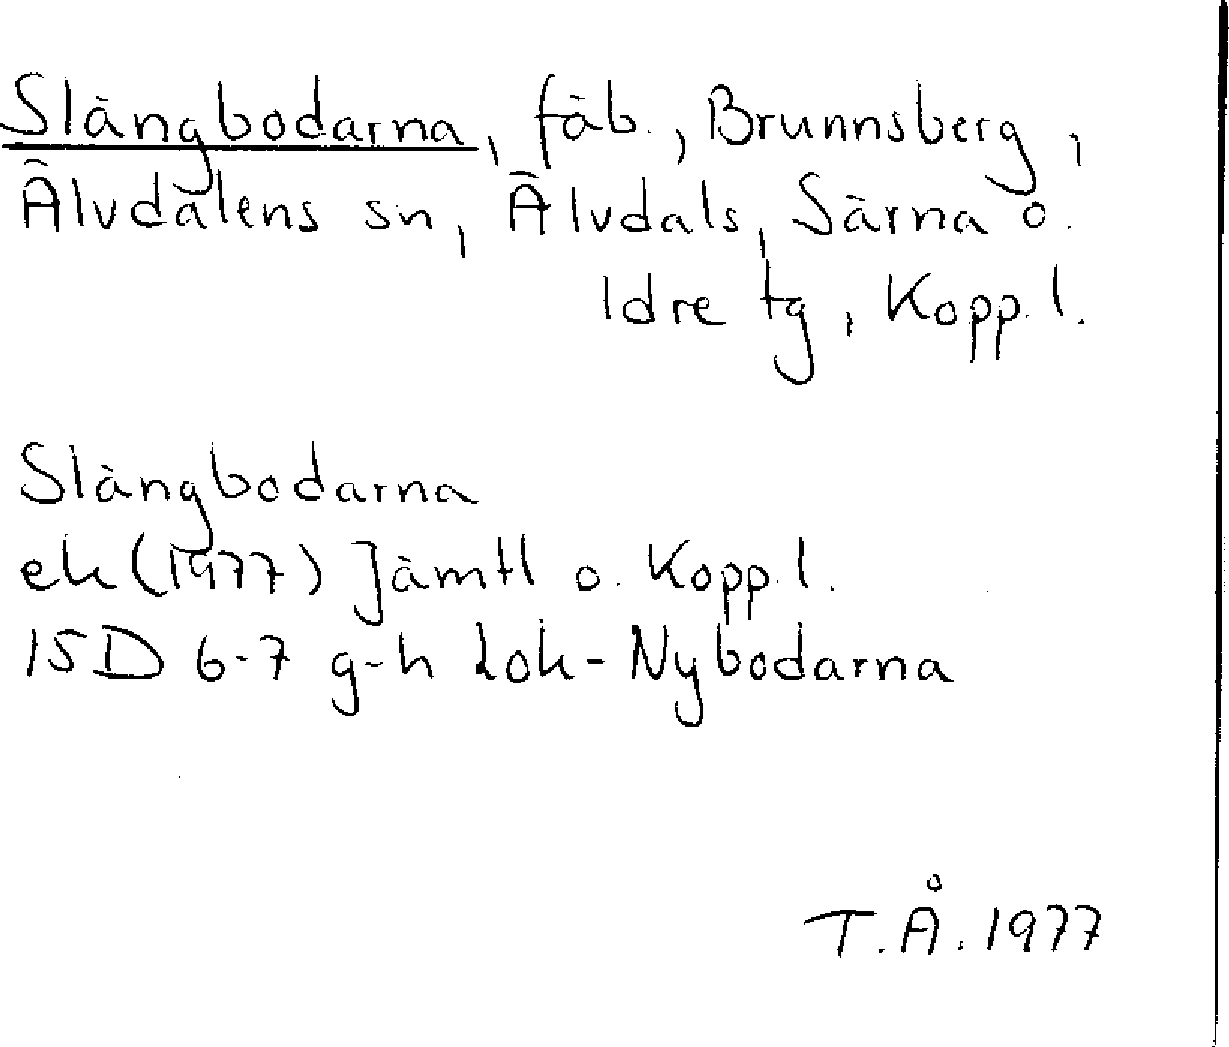 Slängbodarna, fäb., Brunnsberg,
Älvdalens sn, Älvdals, Särna o.
Idre tg, Kopp. l.
Slängbodarna
ek (1977) Jämtl o. Kopp. l.
15D 6-7 g-h Lok-Nybodarna
T.Å. 1977